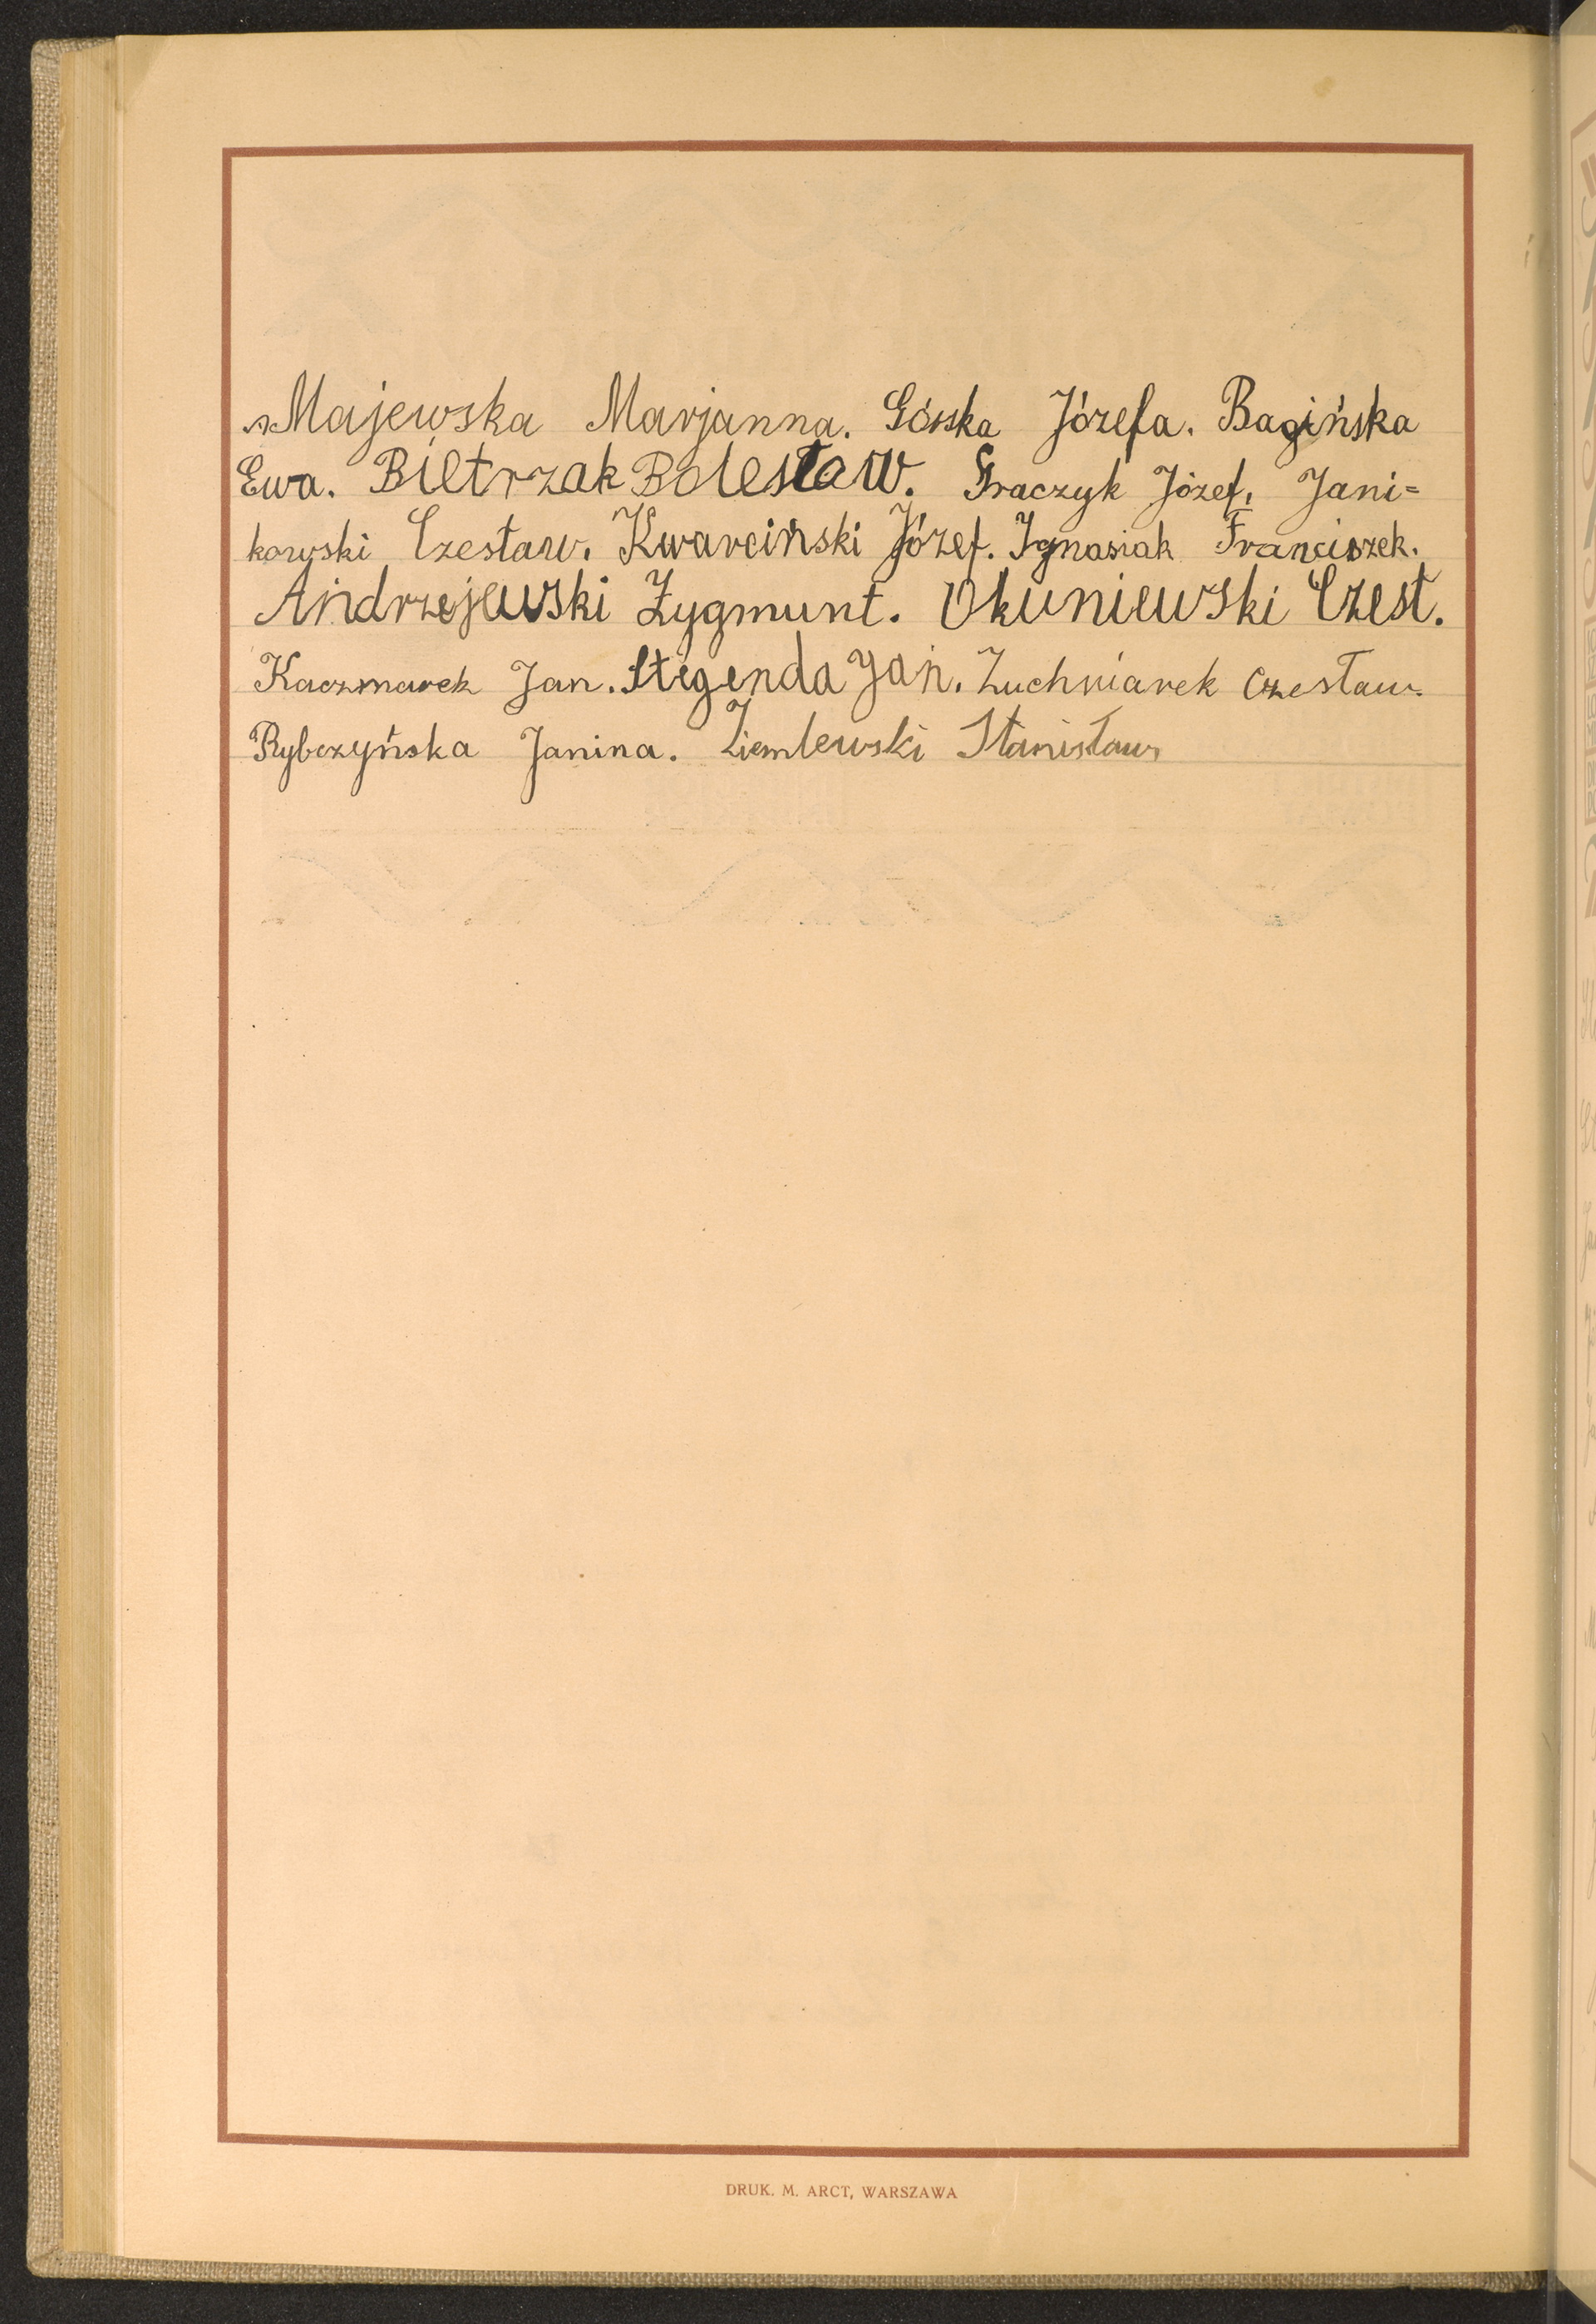 Majewska Marjanna. Górska Józefa. Bagińska
Ewa. Bietrzak Bolesław. Graczyk Józef, Jani=
kowski Czesław. Kwarciński Józef. Ignasiak Franciszek.
Andrzejewski Zygmunt. Okuniewski Czest.
Kaczmarek Jan. Stegenda Jan. Zuchniarek Czesław.
Rybczyńska Janina. Ziemlewski Stanisław
DRUK. M. ARCT, WARSZAWA